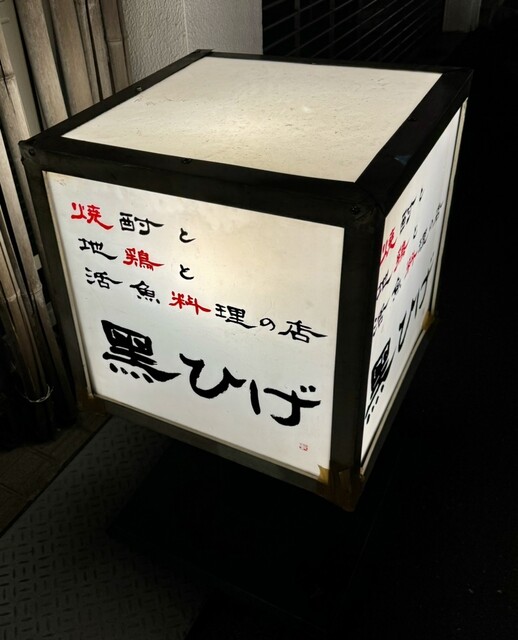 焼酎と
地鶏と
活魚料理の店
黒ひげ
焼酎と
地鶏と
活魚料理の店
黒ひげ